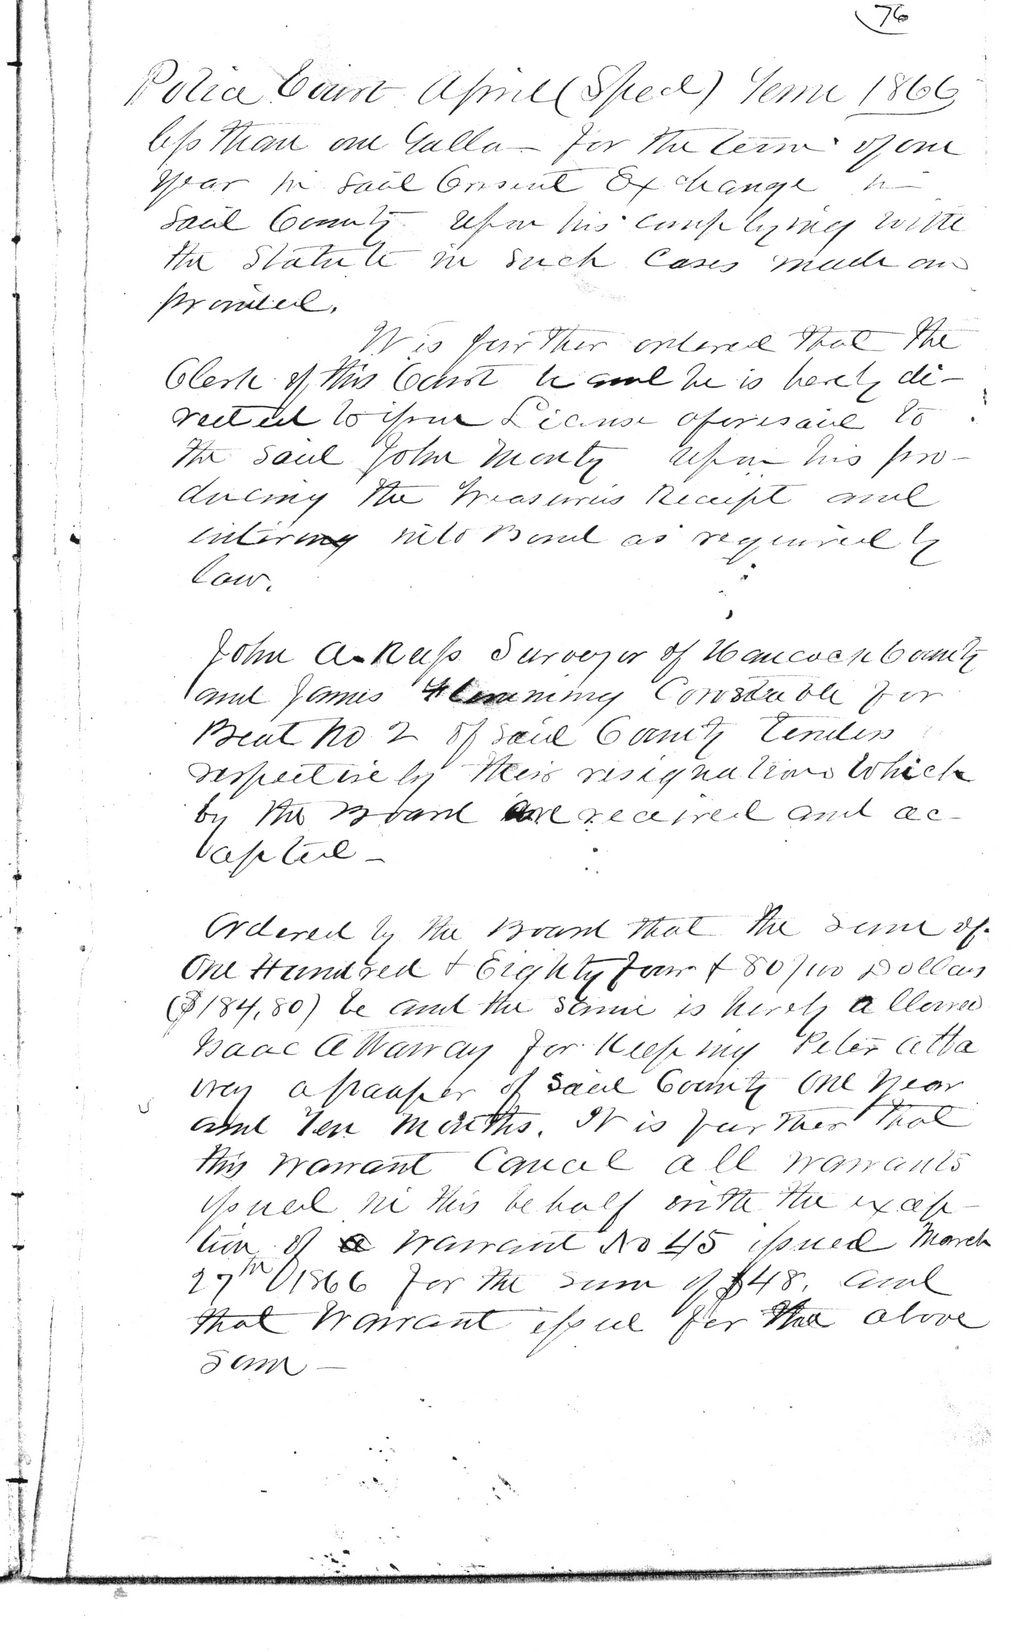 76
Police Court April (Specl) Term 1866
less than one Gallo— for the term of one
year in said Cresent Exchange in
said County upon his complying with
the Statute in such Cases made and
provided.
It is further ordered that the
Clerk of this Court be and he is hereby di-
rected to issue License aforesaid to
the said John Monty upon his pro-
ducing the Treasurers Receipt and
entering into Bond as required by
law.
John A. Ress Surveyor of Hancock County
and James Flemming Constable for
Beat No 2 of said County tenders
respectively their resignations which
by the Board are received and ac-
cepted —
Ordered by the Board that the sum of
One Hundred & Eighty four & 80/100 Dollars
($184,80) be and the same is hereby allowed
Isaac Attaway for Keeping Peter Atta
way a pauper of said County one year
and Ten Months. It is further that
this Warrant Cancel all warrants
issued in this behalf with the excep-
tion of a Warrant No 45 issued March
27th 1866 for the sum of $48. and
that Warrant issue for the above
Sum —